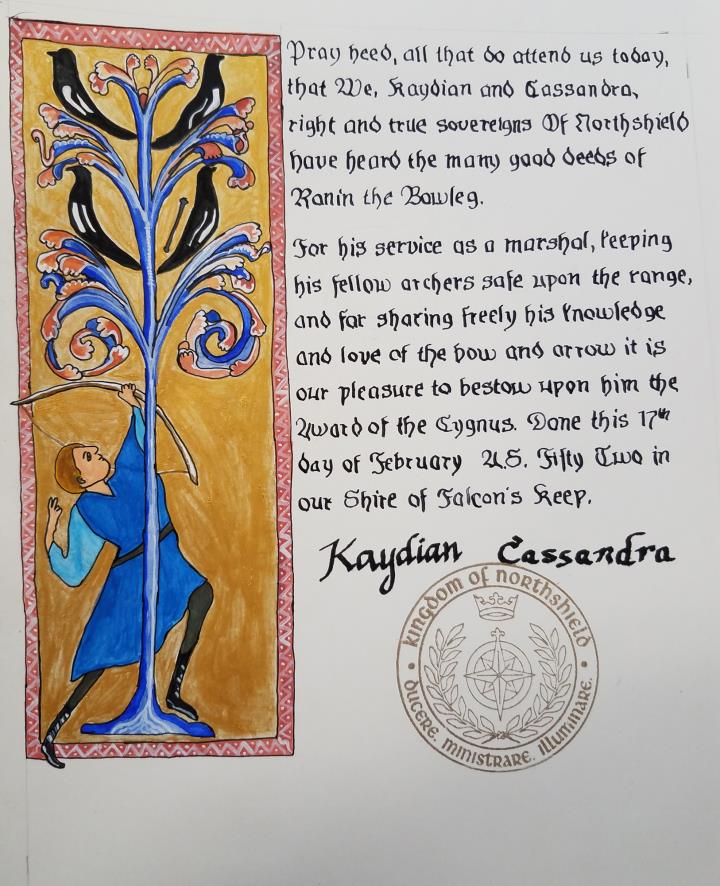 Pray heed, all that do attend us today,
that We, Kaydian and Cassandra,
right and true sovereigns Of Northshield
have heard the many good deeds of
Ranin the Bowleg.
For his service as a marshal, keeping
his fellow archers safe upon the range,
and for sharing freely his knowledge
and love of the bow and arrow it is
our pleasure to bestow upon him the
Award of the Cygnus. Done this 17th
day of February A.S. Fifty Two in
our Shire of Falcon's Keep.
Kaydian Cassandra
kingdom of northshield
ducere. ministrare. illuminare.